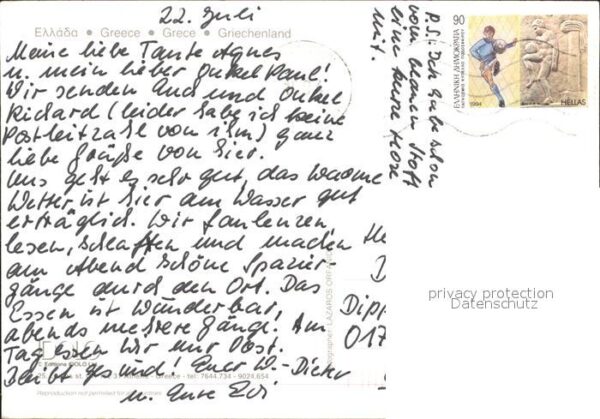 22. Juli
Ελλάδα • Greece • Grèce • Griechenland
Meine liebe Tante Agnes
u. mein lieber Onkel Paul!
Wir senden Euch und Onkel
Richard (leider habe ich keine
Postleitzahl von ihm) ganz
liebe Grüße von hier.
Uns geht es sehr gut, das warme
Wetter ist hier am Wasser gut
erträglich. Wir faulenzen,
lesen, schlafen und machen
am Abend schöne Spazier-
gänge durch den Ort. Das
Essen ist wunderbar,
abends mehrere Gänge. Am
Tag essen wir nur Obst.
Bleibt gesund! Euer W.-Dieter
u. Eure
P.S.: Ich habe schon
vom blauen Stoff
eine kurze Hose
mit.
90
ΕΛΛΗΝΙΚΗ ΔΗΜΟΚΡΑΤΙΑ
1994
HELLAS
He
D
Dipp
017
privacy protection
Datenschutz
LAZAROS
Tel.: 7644.734 - 9024.654
Reproduction not permitted